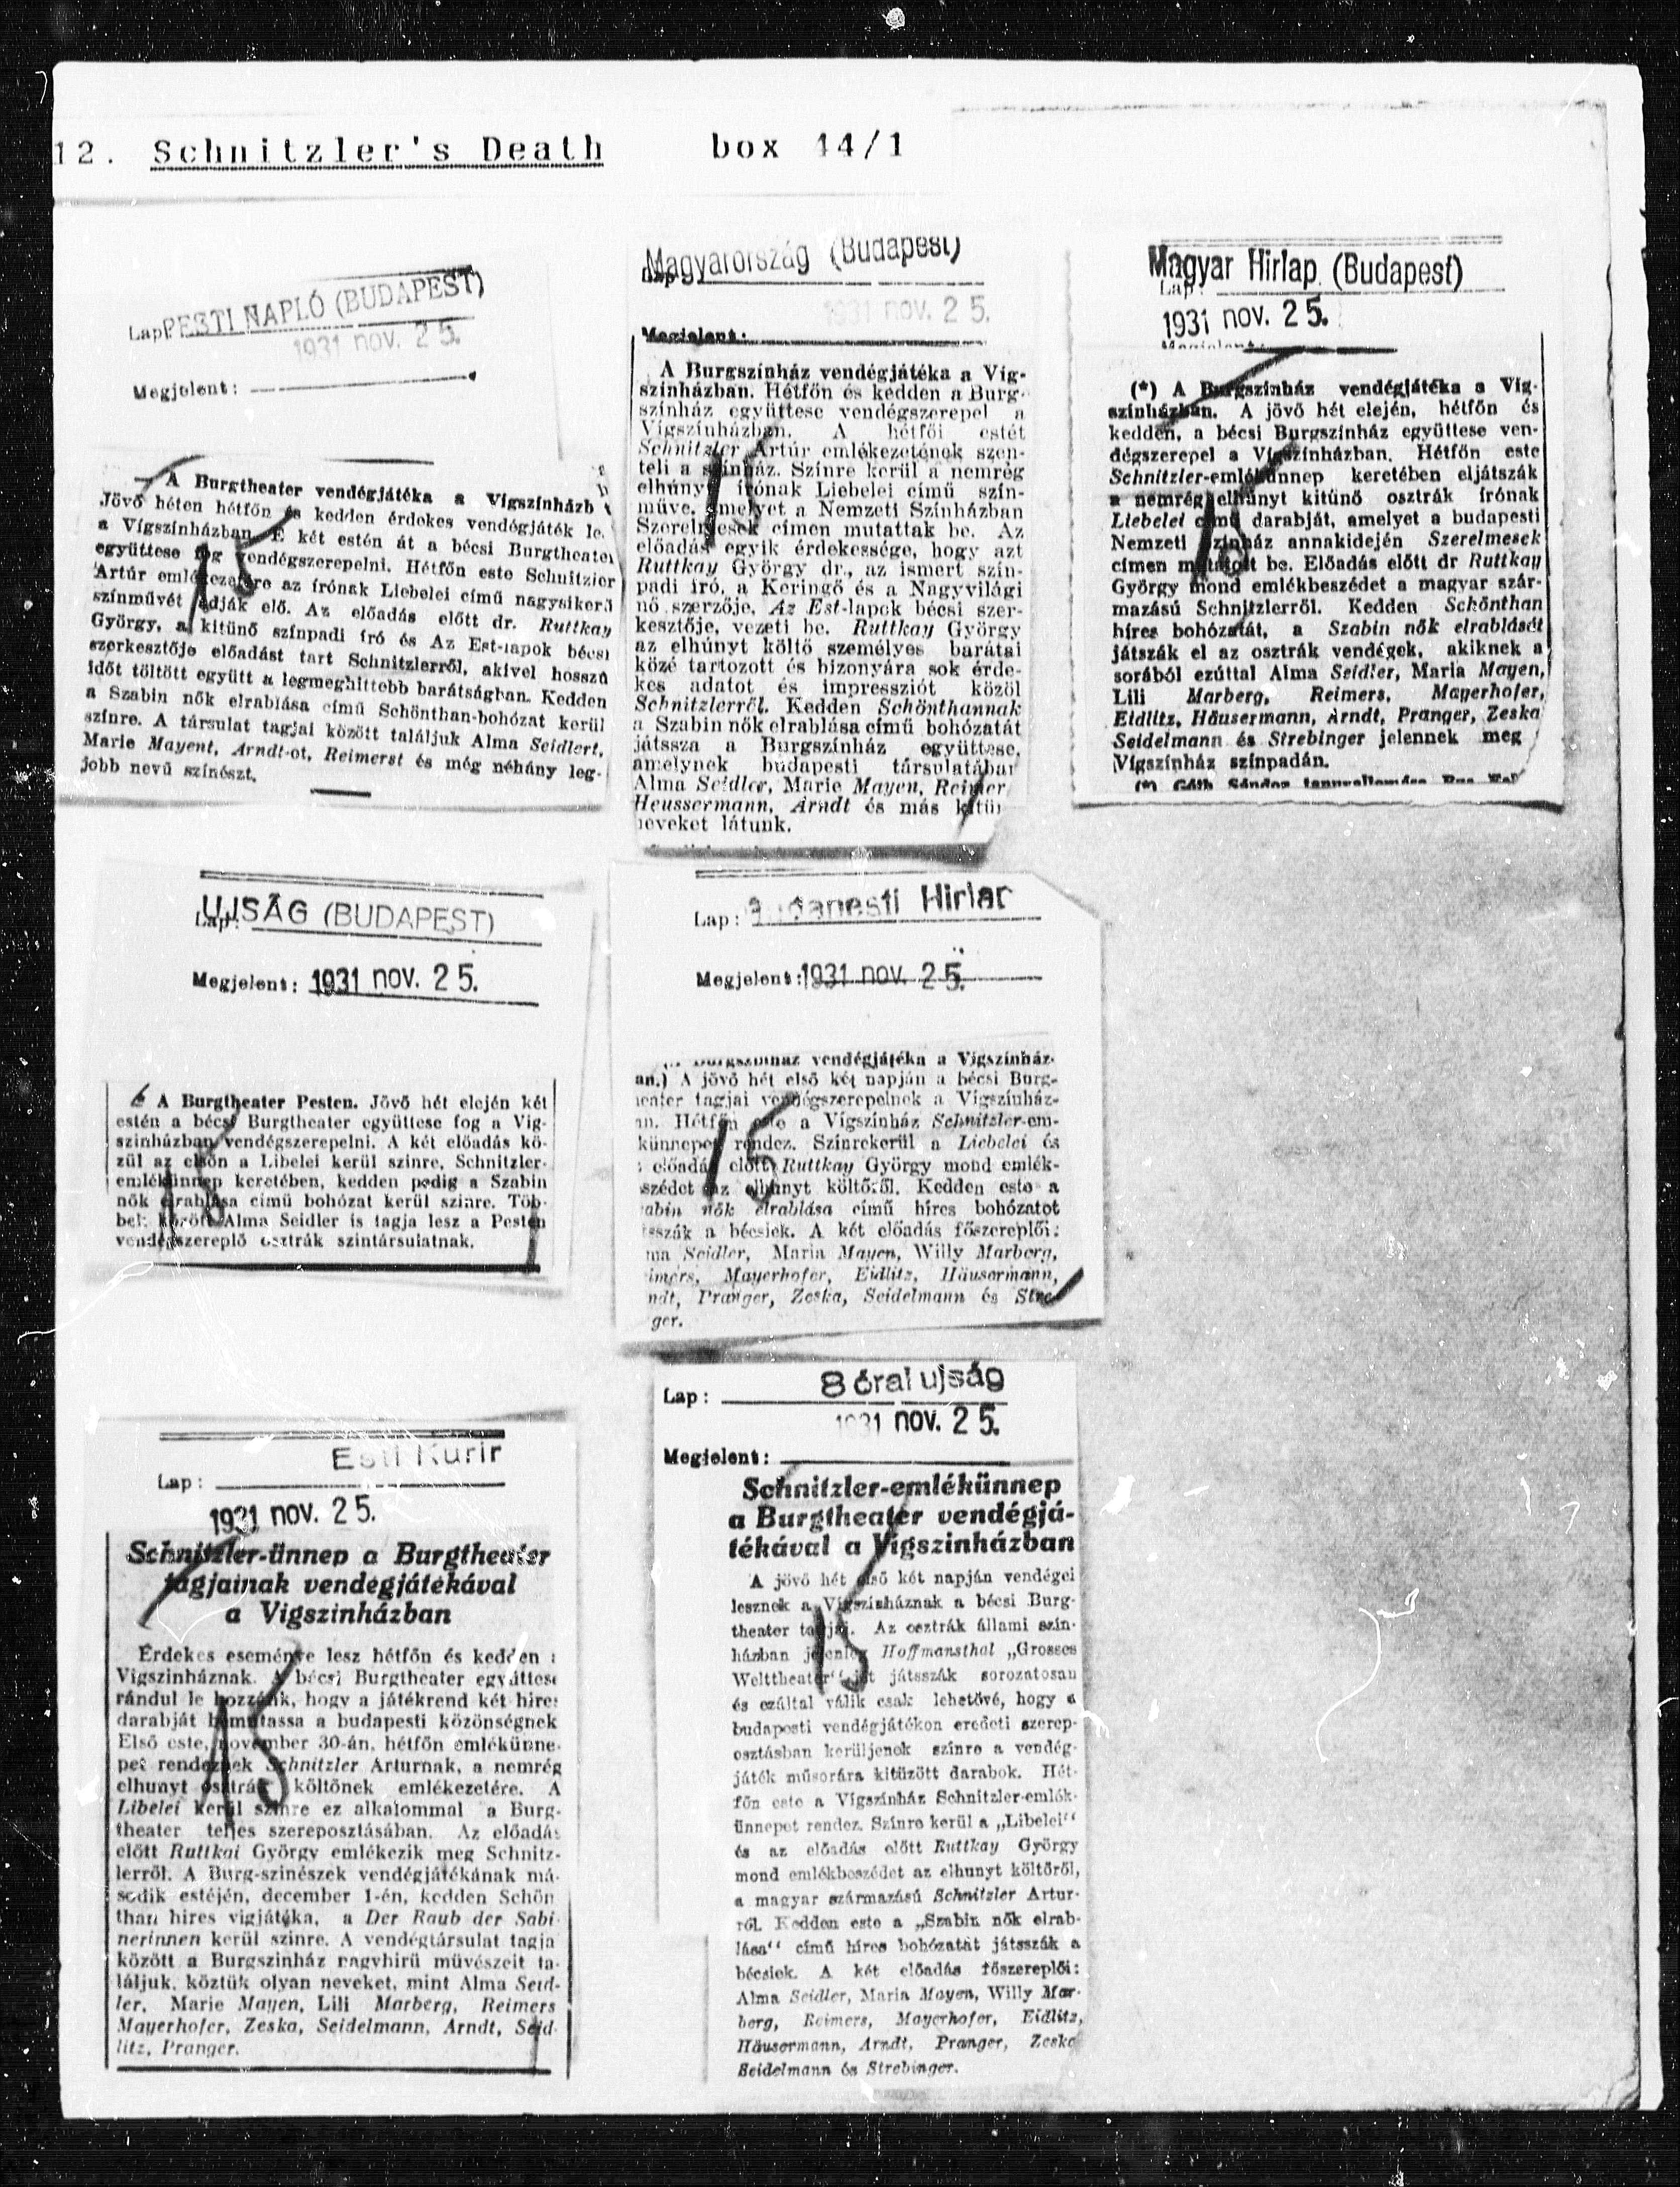 12. Schnitzler's Death box 44/1
Lap: PESTI NAPLÓ (BUDAPEST)
1931 nov. 25.
Megjelent:
A Burgtheater vendégjátéka a Vígszínházb
Jövő héten hétfőn és kedden érdekes vendégjáték le
a Vígszínházban. E két estén át a bécsi Burgtheater
együttese fog vendégszerepelni. Hétfőn este Schnitzler
Artúr emlékezetére az írónak Liebelei című nagysikerű
színművét adják elő. Az előadás előtt dr. Ruttkay
György, a kitünő színpadi író és Az Est-lapok bécsi
szerkesztője előadást tart Schnitzlerről, akivel hosszú
időt töltött együtt a legmeghittebb barátságban. Kedden
a Szabin nők elrablása című Schönthan-bohózat kerül
színre. A társulat tagjai között találjuk Alma Seidlert,
Marie Mayent, Arndt-ot, Reimerst és még néhány leg-
jobb nevű színészt.
Magyarország (Budapest)
Lap:
1931 nov. 25.
Megjelent:
A Burgszínház vendégjátéka a Víg-
színházban. Hétfőn és kedden a Burg-
színház együttese vendégszerepel a
Vígszínházban. A hétfői estét
Schnitzler Artúr emlékezetének szen-
teli a színház. Színre kerül a nemrég
elhúnyt írónak Liebelei című szín-
műve, amelyet a Nemzeti Színházban
Szerelmesek címen mutattak be. Az
előadás egyik érdekessége, hogy azt
Ruttkay György dr., az ismert szín-
padi író, a Keringő és a Nagyvilági
nő szerzője, Az Est-lapok bécsi szer-
kesztője, vezeti be. Ruttkay György
az elhúnyt költő személyes barátai
közé tartozott és bizonyára sok érde-
kes adatot és impressziót közöl
Schnitzlerről. Kedden Schönthannak
a Szabin nők elrablása című bohózatát
játssza a Burgszínház együttese,
amelynek budapesti társulatában
Alma Seidler, Marie Mayen, Reimer
Heussermann, Arndt és más kitün
neveket látunk.
Magyar Hirlap (Budapest)
Lap:
1931 nov. 25.
Megjelent:
(*) A Burgszinház vendégjátéka a Vig-
szinházban. A jövő hét elején, hétfőn és
kedden, a bécsi Burgszinház együttese ven-
dégszerepel a Vigszinházban. Hétfőn este
Schnitzler-emlékünnep keretében eljátszák
a nemrég elhúnyt kitünő osztrák írónak
Liebelei cimü darabját, amelyet a budapesti
Nemzeti Szinház annakidején Szerelmesek
címen mutatott be. Előadás előtt dr Ruttkay
György mond emlékbeszédet a magyar szár-
mazású Schnitzlerről. Kedden Schönthan
híres bohózatát, a Szabin nők elrablását
játszák el az osztrák vendégek, akiknek a
sorából ezúttal Alma Seidler, Maria Mayen,
Lili Marberg, Reimers, Mayerhofer,
Eidlitz, Häusermann, Arndt, Pranger, Zeska
Seidelmann és Strebinger jelennek meg
Vigszinház szinpadán.
(*) Góth Sándor
UJSÁG (BUDAPEST)
Lap:
Megjelent: 1931 nov. 25.
A Burgtheater Pesten. Jövő hét elején két
estén a bécsi Burgtheater együttese fog a Vig-
szinházban vendégszerepelni. A két előadás kö-
zül az elsőn a Libelei kerül szinre, Schnitzler-
emlékünnep keretében, kedden pedig a Szabin
nők elrablása cimü bohózat kerül szinre. Töb-
bek között Alma Seidler is tagja lesz a Pesten
vendégszereplő osztrák szintársulatnak.
Lap: Budapesti Hirlap
Megjelent: 1931 nov. 25.
Burgszínház vendégjátéka a Vígszínház-
an.) A jövő hét első két napján a bécsi Burg-
heater tagjai vendégszerepelnek a Vígszínház-
an. Hétfőn este a Vígszínház Schnitzler-em-
künnepet rendez. Színrekerül a Liebelei és
előadás előtt Ruttkay György mond emlék-
szédet az elhunyt költőről. Kedden este a
abin nők elrablása című híres bohózatot
tsszák a bécsiek. A két előadás főszereplői:
ma Seidler, Maria Mayen, Willy Marberg,
imers, Mayerhofer, Eidlitz, Häusermann,
ndt, Pranger, Zeska, Seidelmann és Stre-
ger.
Lap: 8 órai ujság
1931 nov. 25.
Megjelent:
Schnitzler-emlékünnep
a Burgtheater vendégjá-
tékával a Vigszinházban
A jövő hét első két napján vendégei
lesznek a Vigszinháznak a bécsi Burg-
theater tagjai. Az osztrák állami szin-
házban jelenleg Hoffmansthal „Grosses
Welttheater“-jét játsszák sorozatosan
és ezáltal válik csak lehetővé, hogy a
budapesti vendégjátékon eredeti szerep-
osztásban kerüljenek szinre a vendég-
játék műsorára kitüzött darabok. Hét-
főn este a Vigszinház Schnitzler-emlék-
ünnepet rendez. Szinre kerül a „Libelei“
és az előadás előtt Ruttkay György
mond emlékbeszédet az elhunyt költőről,
a magyar származású Schnitzler Artur-
ról. Kedden este a „Szabin nők elrab-
lása“ című híres bohózatát játsszák a
bécsiek. A két előadás főszereplői:
Alma Seidler, Maria Mayen, Willy Mar-
berg, Reimers, Mayerhofer, Eidlitz,
Häusermann, Arndt, Pranger, Zeska
Seidelmann és Strebinger.
Esti Kurir
Lap:
1931 nov. 25.
Schnitzler-ünnep a Burgtheater
tagjainak vendégjátékával
a Vigszinházban
Érdekes eseménye lesz hétfőn és kedden
Vigszinháznak. A bécsi Burgtheater együttese
rándul le hozzánk, hogy a játékrend két hires
darabját bemutassa a budapesti közönségnek
Első este, november 30-án, hétfőn emlékünne-
pet rendeznek Schnitzler Arturnak, a nemrég
elhunyt osztrák költőnek emlékezetére. A
Libelei kerül szinre ez alkalommal a Burg-
theater teljes szereposztásában. Az előadás
előtt Ruttkai György emlékezik meg Schnitz-
lerről. A Burg-szinészek vendégjátékának má-
sodik estéjén, december 1-én, kedden Schön
than hires vigjátéka, a Der Raub der Sabi-
nerinnen kerül szinre. A vendégtársulat tagja
között a Burgszinház nagyhirü művészeit ta-
láljuk, köztük olyan neveket, mint Alma Seid-
ler, Marie Mayen, Lili Marberg, Reimers
Mayerhofer, Zeska, Seidelmann, Arndt, Seid-
litz, Pranger.